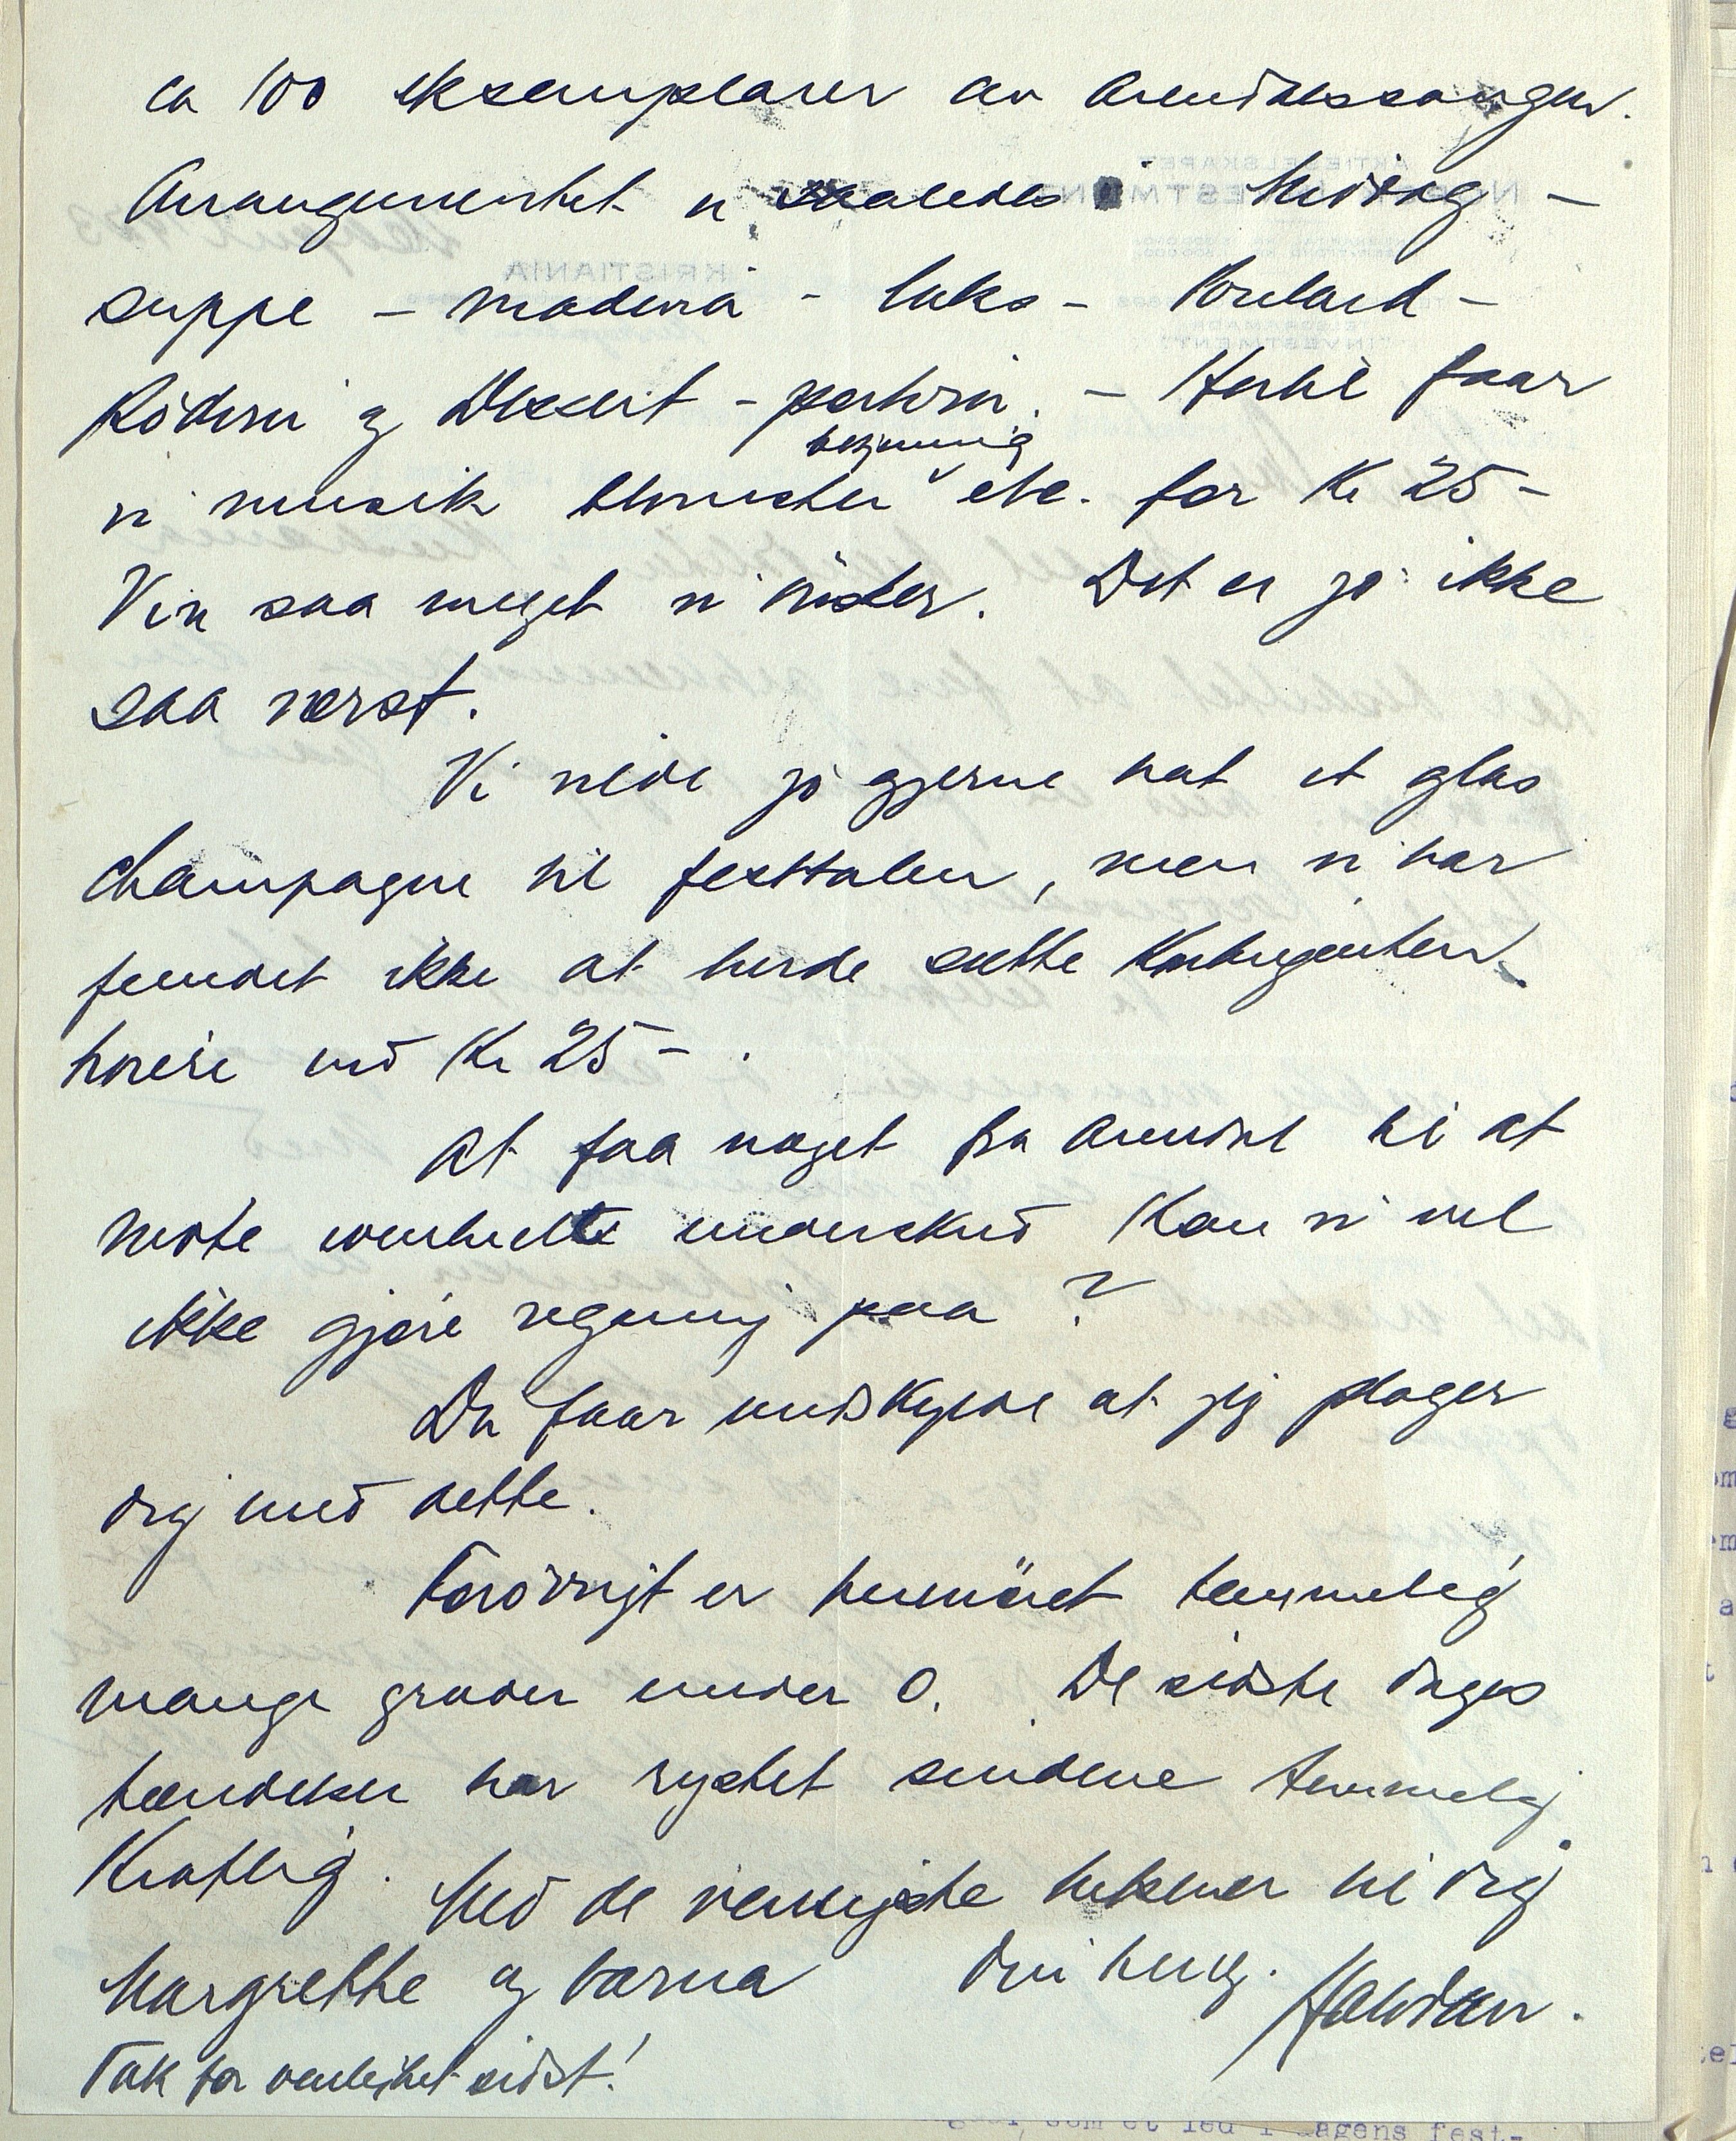 ca 100 eksemplarer av Arendalssangen.
Arrangementet er saaledes: Middag –
suppe – madeira – laks – Poulard –
Rödvin og Dessert – portvin. – Hertil faar
vi musik blomster betjening etc. for Kr 25 –
Vin saa meget vi önsker. Det er jo ikke
saa verst.
Vi vilde jo gjerne hat et glas
Champagne til festtalen, men vi har
fundet ikke at burde sætte Kontingenten
höiere end Kr 25 – .
At faa noget fra Arendal til at
möte eventuelt underskud kan vi vel
ikke gjöre regning paa?
Du faar undskylde at jeg plager
dig med dette.
Forövrigt er humöret temmelig
mange grader under 0. De sidste dages
hændelser har rystet sindene temmelig
Kraftig. Med de venligste hilsener til dig
Margrethe og barna din heng. Halvdan.
Tak for venlighet sidst!